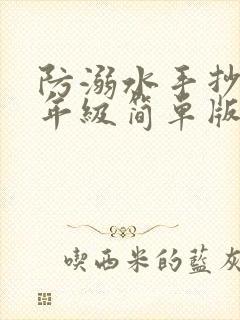 防溺水手抄
年级简单版
喫西米的藍灰